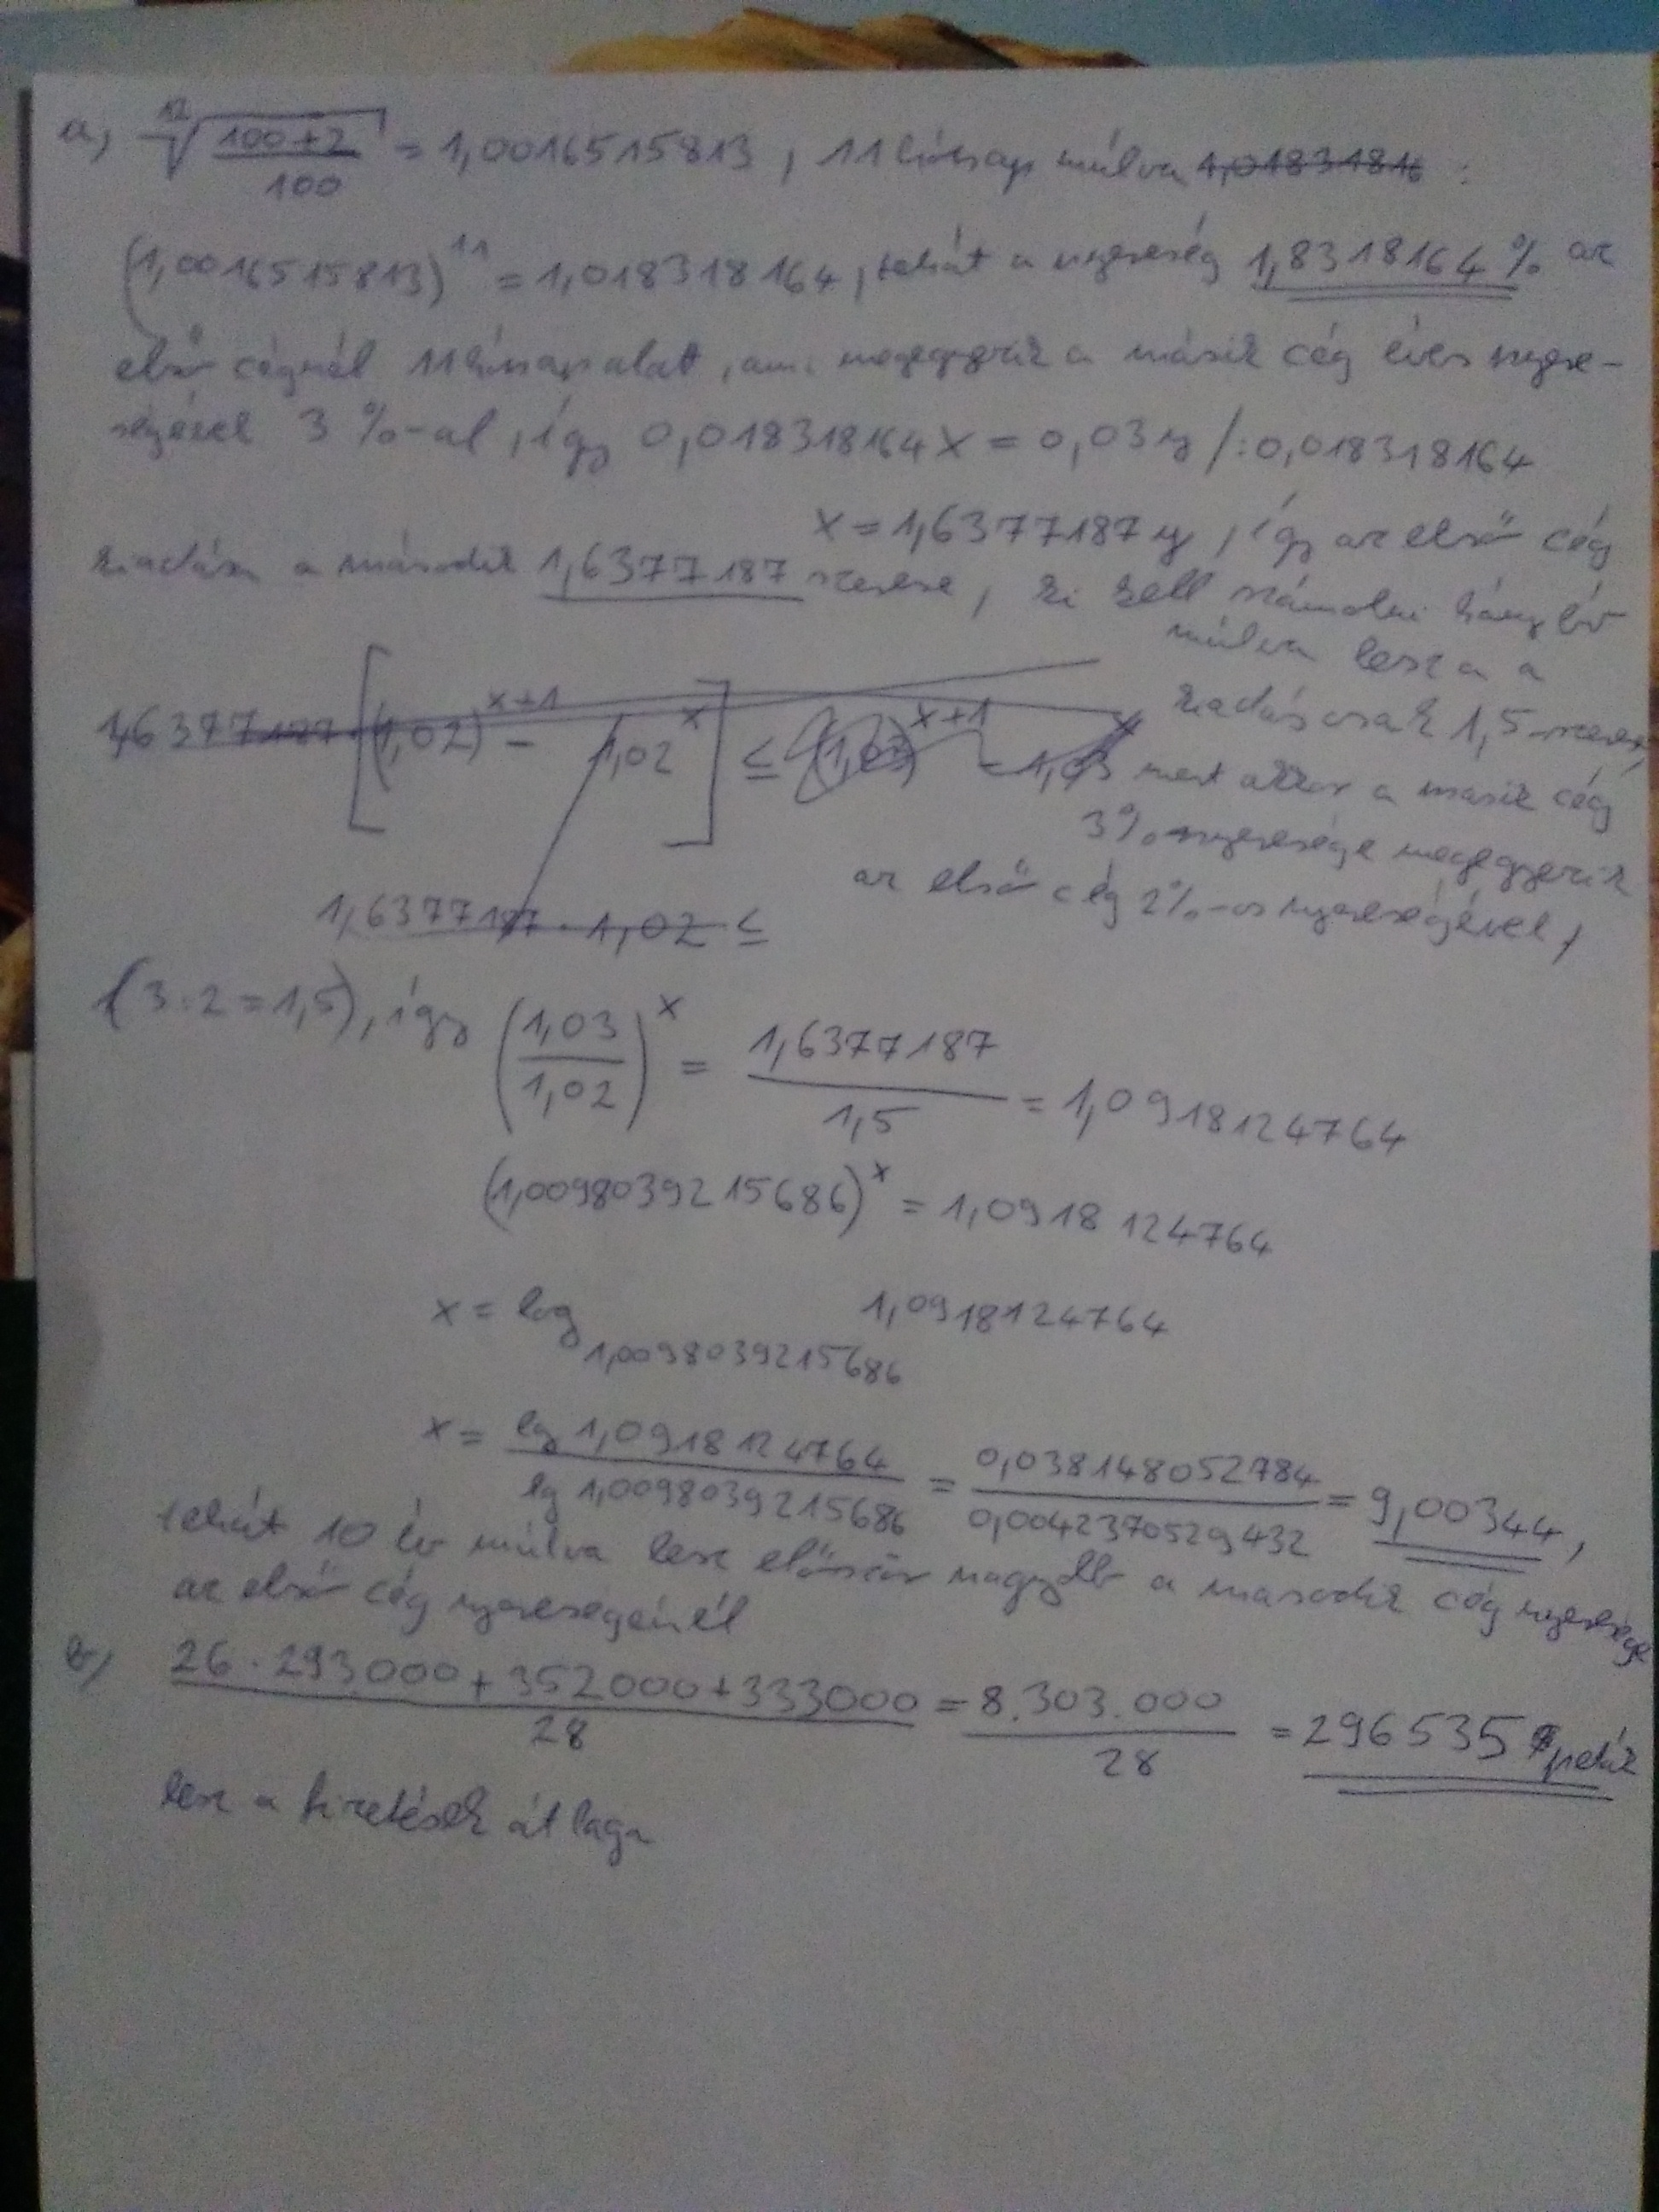 a, ¹²√((100+2)/100) = 1,0016515813, 11 hónap múlva 1,01831816 :
(1,0016515813)¹¹ = 1,018318164, tehát a nyereség 1,8318164 % az
első cégnél 11 hónap alatt, ami megegyezik a másik cég éves nyere-
ségével 3 %-al, így 0,018318164 x = 0,03 y /:0,018318164
x = 1,6377187 y, így az első cég
kiadása a második 1,6377187 szerese, ki kell számolni hány év
múlva lesz a a
kiadás csak 1,5-szeres,
1,6377187 [(1,02)^(x+1) - 1,02^x] ≤ (1,03)^(x+1) - 1,03^x
mert akkor a másik cég
3%-nyeresége megegyezik
az első cég 2%-os nyereségével,
1,6377187 · 1,02 ≤
(3:2=1,5), így (1,03/1,02)^x = 1,6377187/1,5 = 1,0918124764
(1,0098039215686)^x = 1,0918124764
x = log_1,0098039215686 1,0918124764
x = lg 1,0918124764 / lg 1,0098039215686 = 0,038148052784 / 0,0042370529432 = 9,00344,
tehát 10 év múlva lesz először nagyobb a második cég nyeresége
az első cég nyereségénél
b, (26 · 293000 + 352000 + 333000)/28 = 8.303.000/28 = 296535 peták
lesz a fizetések átlaga